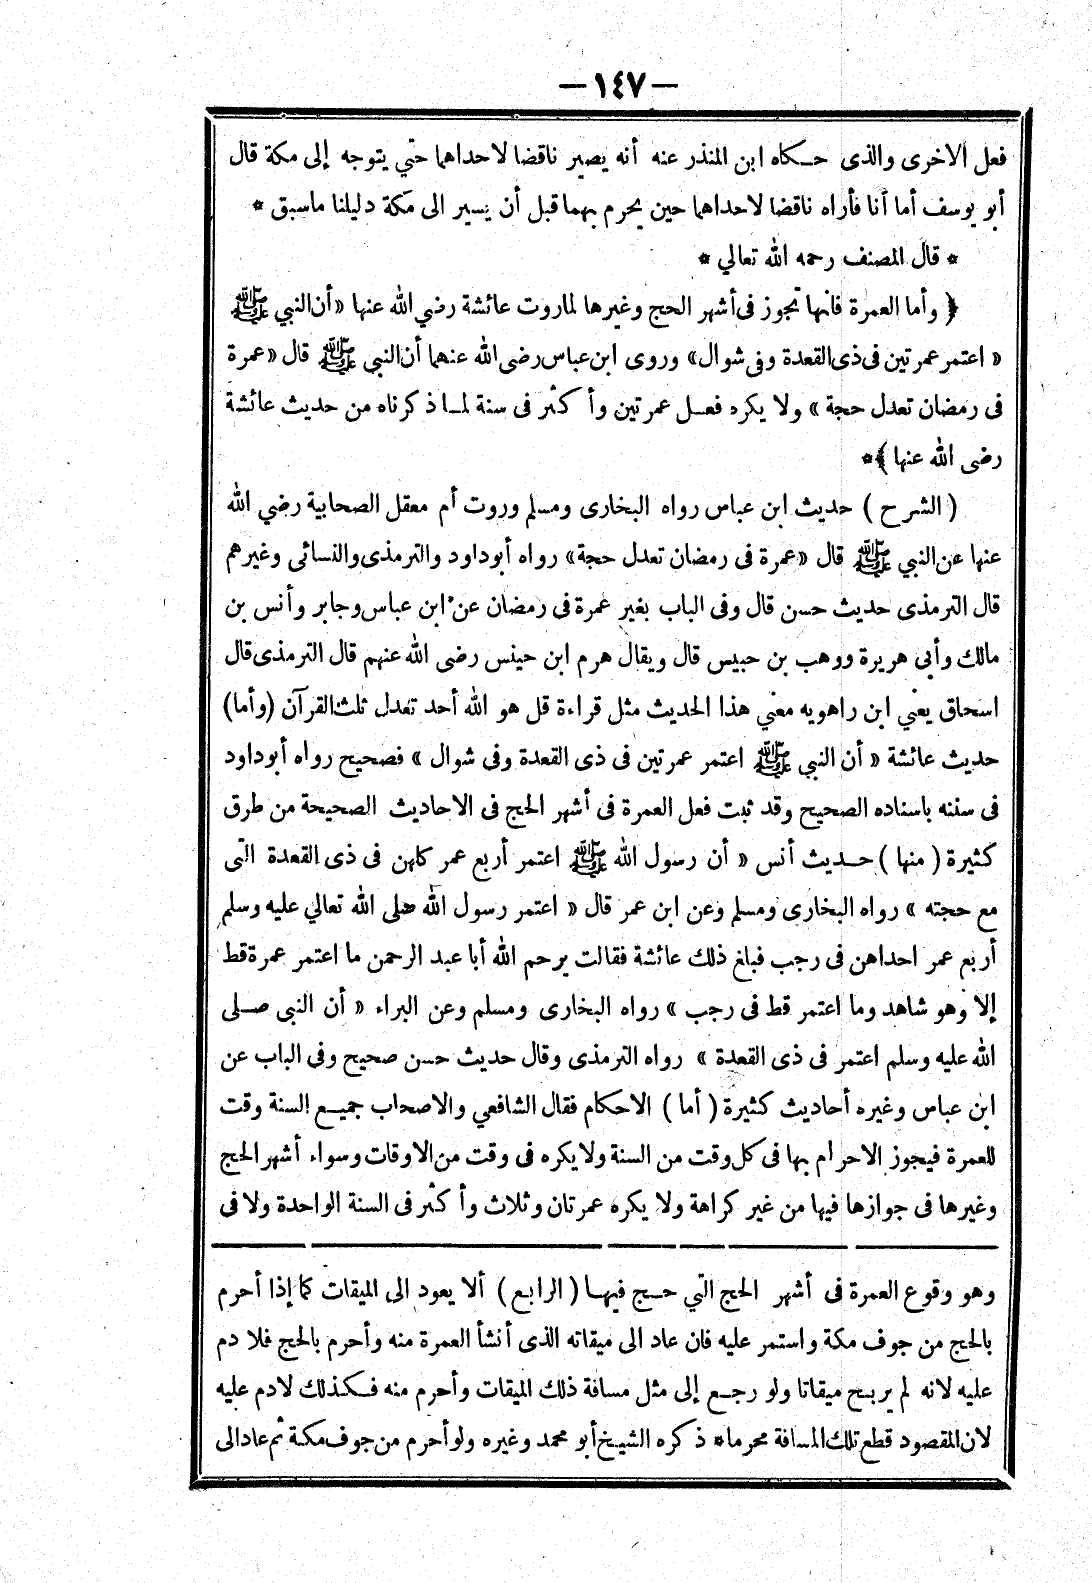 — ١٤٧ —
فعل الاخرى والذى حـكاه ابن المنذر عنه أنه يصير ناقضا لاحداهما حتي يتوجه إلى مكة قال
أبو يوسف أما أنا فأراه ناقضا لاحداهما حين يحرم بهما قبل أن يسير الى مكة دليلنا ماسبق *
* قال المصنف رحمه الله تعالي *
﴿ وأما العمرة فانها تجوز فى أشهر الحج وغيرها لماروت عائشة رضي الله عنها « أن النبي ﷺ
« اعتمر عمرتين فى ذى القعدة وفى شوال » وروى ابن عباس رضى الله عنهما أن النبي ﷺ قال « عمرة
فى رمضان تعدل حجة » ولا يكره فعـل عمرتين وأكثر فى سنة لمـا ذكرناه من حديث عائشة
رضى الله عنها ﴾ *
( الشرح ) حديث ابن عباس رواه البخارى ومسلم وروت أم معقل الصحابية رضي الله
عنها عن النبي ﷺ قال « عمرة فى رمضان تعدل حجة » رواه أبوداود والترمذى والنسائى وغيرهم
قال الترمذى حديث حسن قال وفى الباب بغير عمرة فى رمضان عن ابن عباس وجابر وأنس بن
مالك وأبي هريرة ووهب بن حبيس قال ويقال هرم ابن حينس رضى الله عنهم قال الترمذى قال
اسحاق يعني ابن راهويه معني هذا الحديث مثل قراءة قل هو الله أحد تعدل ثلث القرآن (وأما)
حديث عائشة « أن النبي ﷺ اعتمر عمرتين فى ذى القعدة وفى شوال » فصحيح رواه أبوداود
فى سننه باسناده الصحيح وقد ثبت فعل العمرة فى أشهر الحج فى الاحاديث الصحيحة من طرق
كثيرة ( منها ) حـديث أنس « أن رسول الله ﷺ اعتمر أربع عمر كلهن فى ذى القعدة التى
مع حجته » رواه البخارى ومسلم وعن ابن عمر قال « اعتمر رسول الله صلى الله تعالي عليه وسلم
أربع عمر احداهن فى رجب فبلغ ذلك عائشة فقالت يرحم الله أبا عبد الرحمن ما اعتمر عمرة قط
إلا وهو شاهد وما اعتمر قط فى رجب » رواه البخارى ومسلم وعن البراء « أن النبى صـلى
الله عليه وسلم اعتمر فى ذى القعدة » رواه الترمذى وقال حديث حسن صحيح وفى الباب عن
ابن عباس وغيره أحاديث كثيرة ( أما ) الاحكام فقال الشافعي والاصحاب جميـع السنة وقت
للعمرة فيجوز الاحرام بها فى كل وقت من السنة ولا يكره فى وقت من الاوقات وسواء أشهر الحج
وغيرها فى جوازها فيها من غير كراهة ولا يكره عمرتان وثلاث وأكثر فى السنة الواحدة ولا فى
وهو وقوع العمرة فى أشهر الحج التي حـج فيهـا ( الرابع ) ألا يعود الى الميقات كما إذا أحرم
بالحج من جوف مكة واستمر عليه فان عاد الى ميقاته الذى أنشأ العمرة منه وأحرم بالحج فلا دم
عليه لانه لم يربـح ميقاتا ولو رجـع إلى مثل مسافة ذلك الميقات وأحرم منه فـكذلك لادم عليه
لان المقصود قطع تلك المسافة محرما * ذكره الشيخ أبو محمد وغيره ولو أحرم من جوف مكـة ثم عاد الى